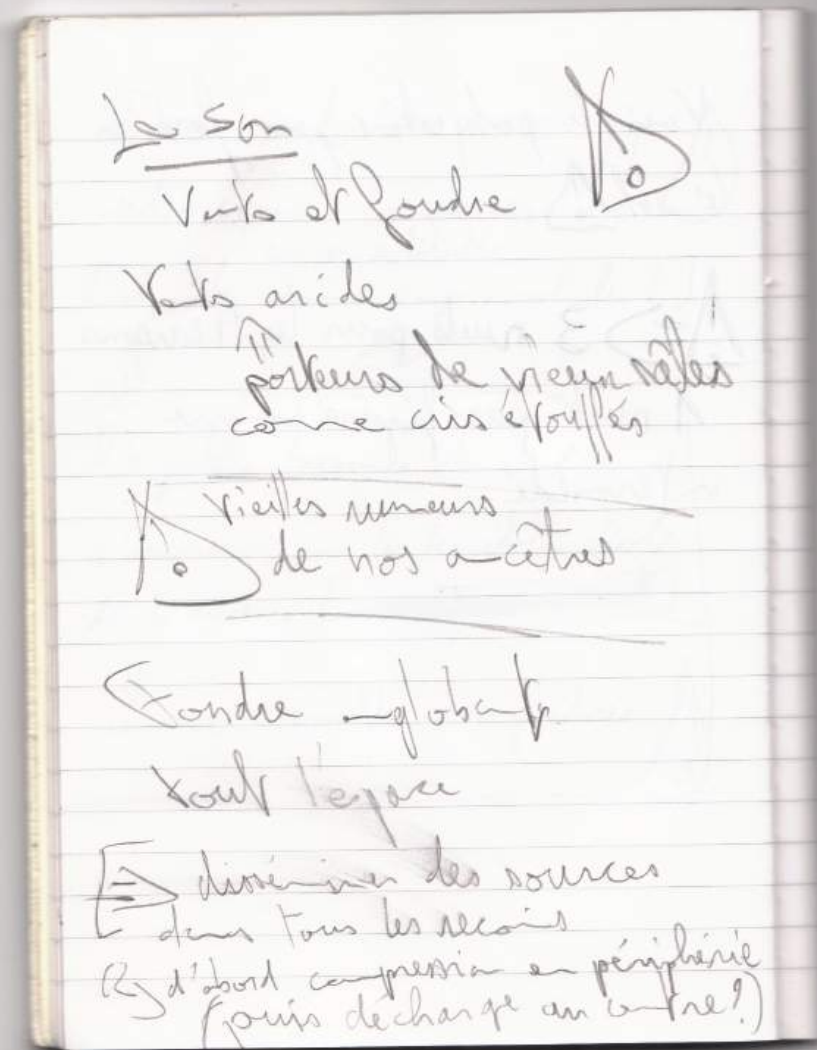 Le Son
Vents et foudre
Vents arides
porteurs de vieux râles
comme cris étouffés
Vieilles rumeurs
de nos ancêtres
Foudre englobant
tout l'espace
disséminer des sources
dans tous les recoins
d'abord compression en périphérie
(puis décharge au centre?)